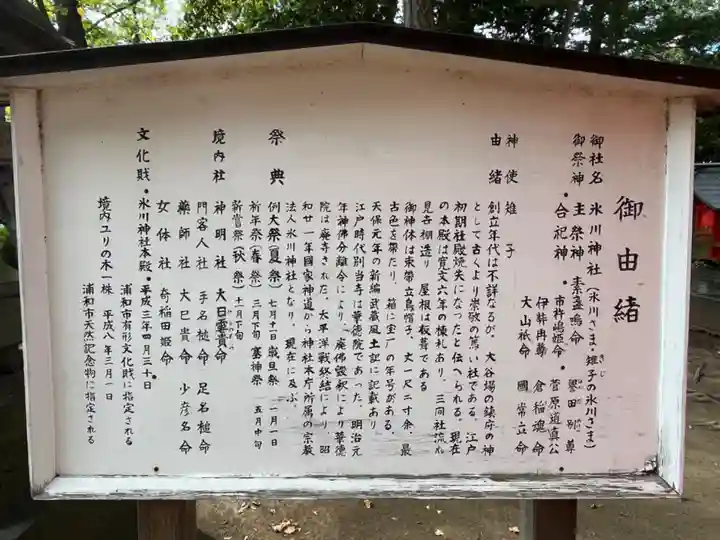 御由緒
御社名 氷川神社(氷川さま・雉子の氷川さま)
きじ
御祭神 主祭神 素盞嗚命
合祀神 市杵嶋姫命 誉田別尊
伊弉冉尊 菅原道真公
大山祇命 倉稲魂命
國常立命
神使 雉子
由緒 創立年代は不詳なるが、大谷場の鎮守の神
として古くより崇敬の篤い社である。江戸
初期社殿焼失になったと伝へられる。現在
の本殿は寛文六年の棟札あり、三間社流れ
見世棚造り 屋根は板葺である
御神体は束帯立烏帽子、丈一尺二寸余、最
古色を帯たり、箱に宝厂の年号がある。
天保元年の新編武蔵風土記に記載あり
江戸時代別当寺は華徳院であった、明治元
年神佛分離令により、廃佛毀釈により華徳
院は廃寺された、太平洋戦終結により、昭
和廿一年國家神道から神社本庁所属の宗教
法人氷川神社となり、現在に及ぶ。
祭典 例大祭(夏祭)七月十一日 歳旦祭 一月一日
祈年祭(春祭)三月下旬 塞神祭 五月中旬
新嘗祭(秋祭)十一月下旬
境内社 神明社 大日孁貴命
門客人社 手名槌命 足名槌命
藥師社 大巳貴命 少彦名命
女体社 奇稲田姫命
文化財・氷川神社本殿・平成三年四月三十日・
浦和市有形文化財に指定される
境内ユリの木一株 平成八年三月一日
浦和市天然記念物に指定される